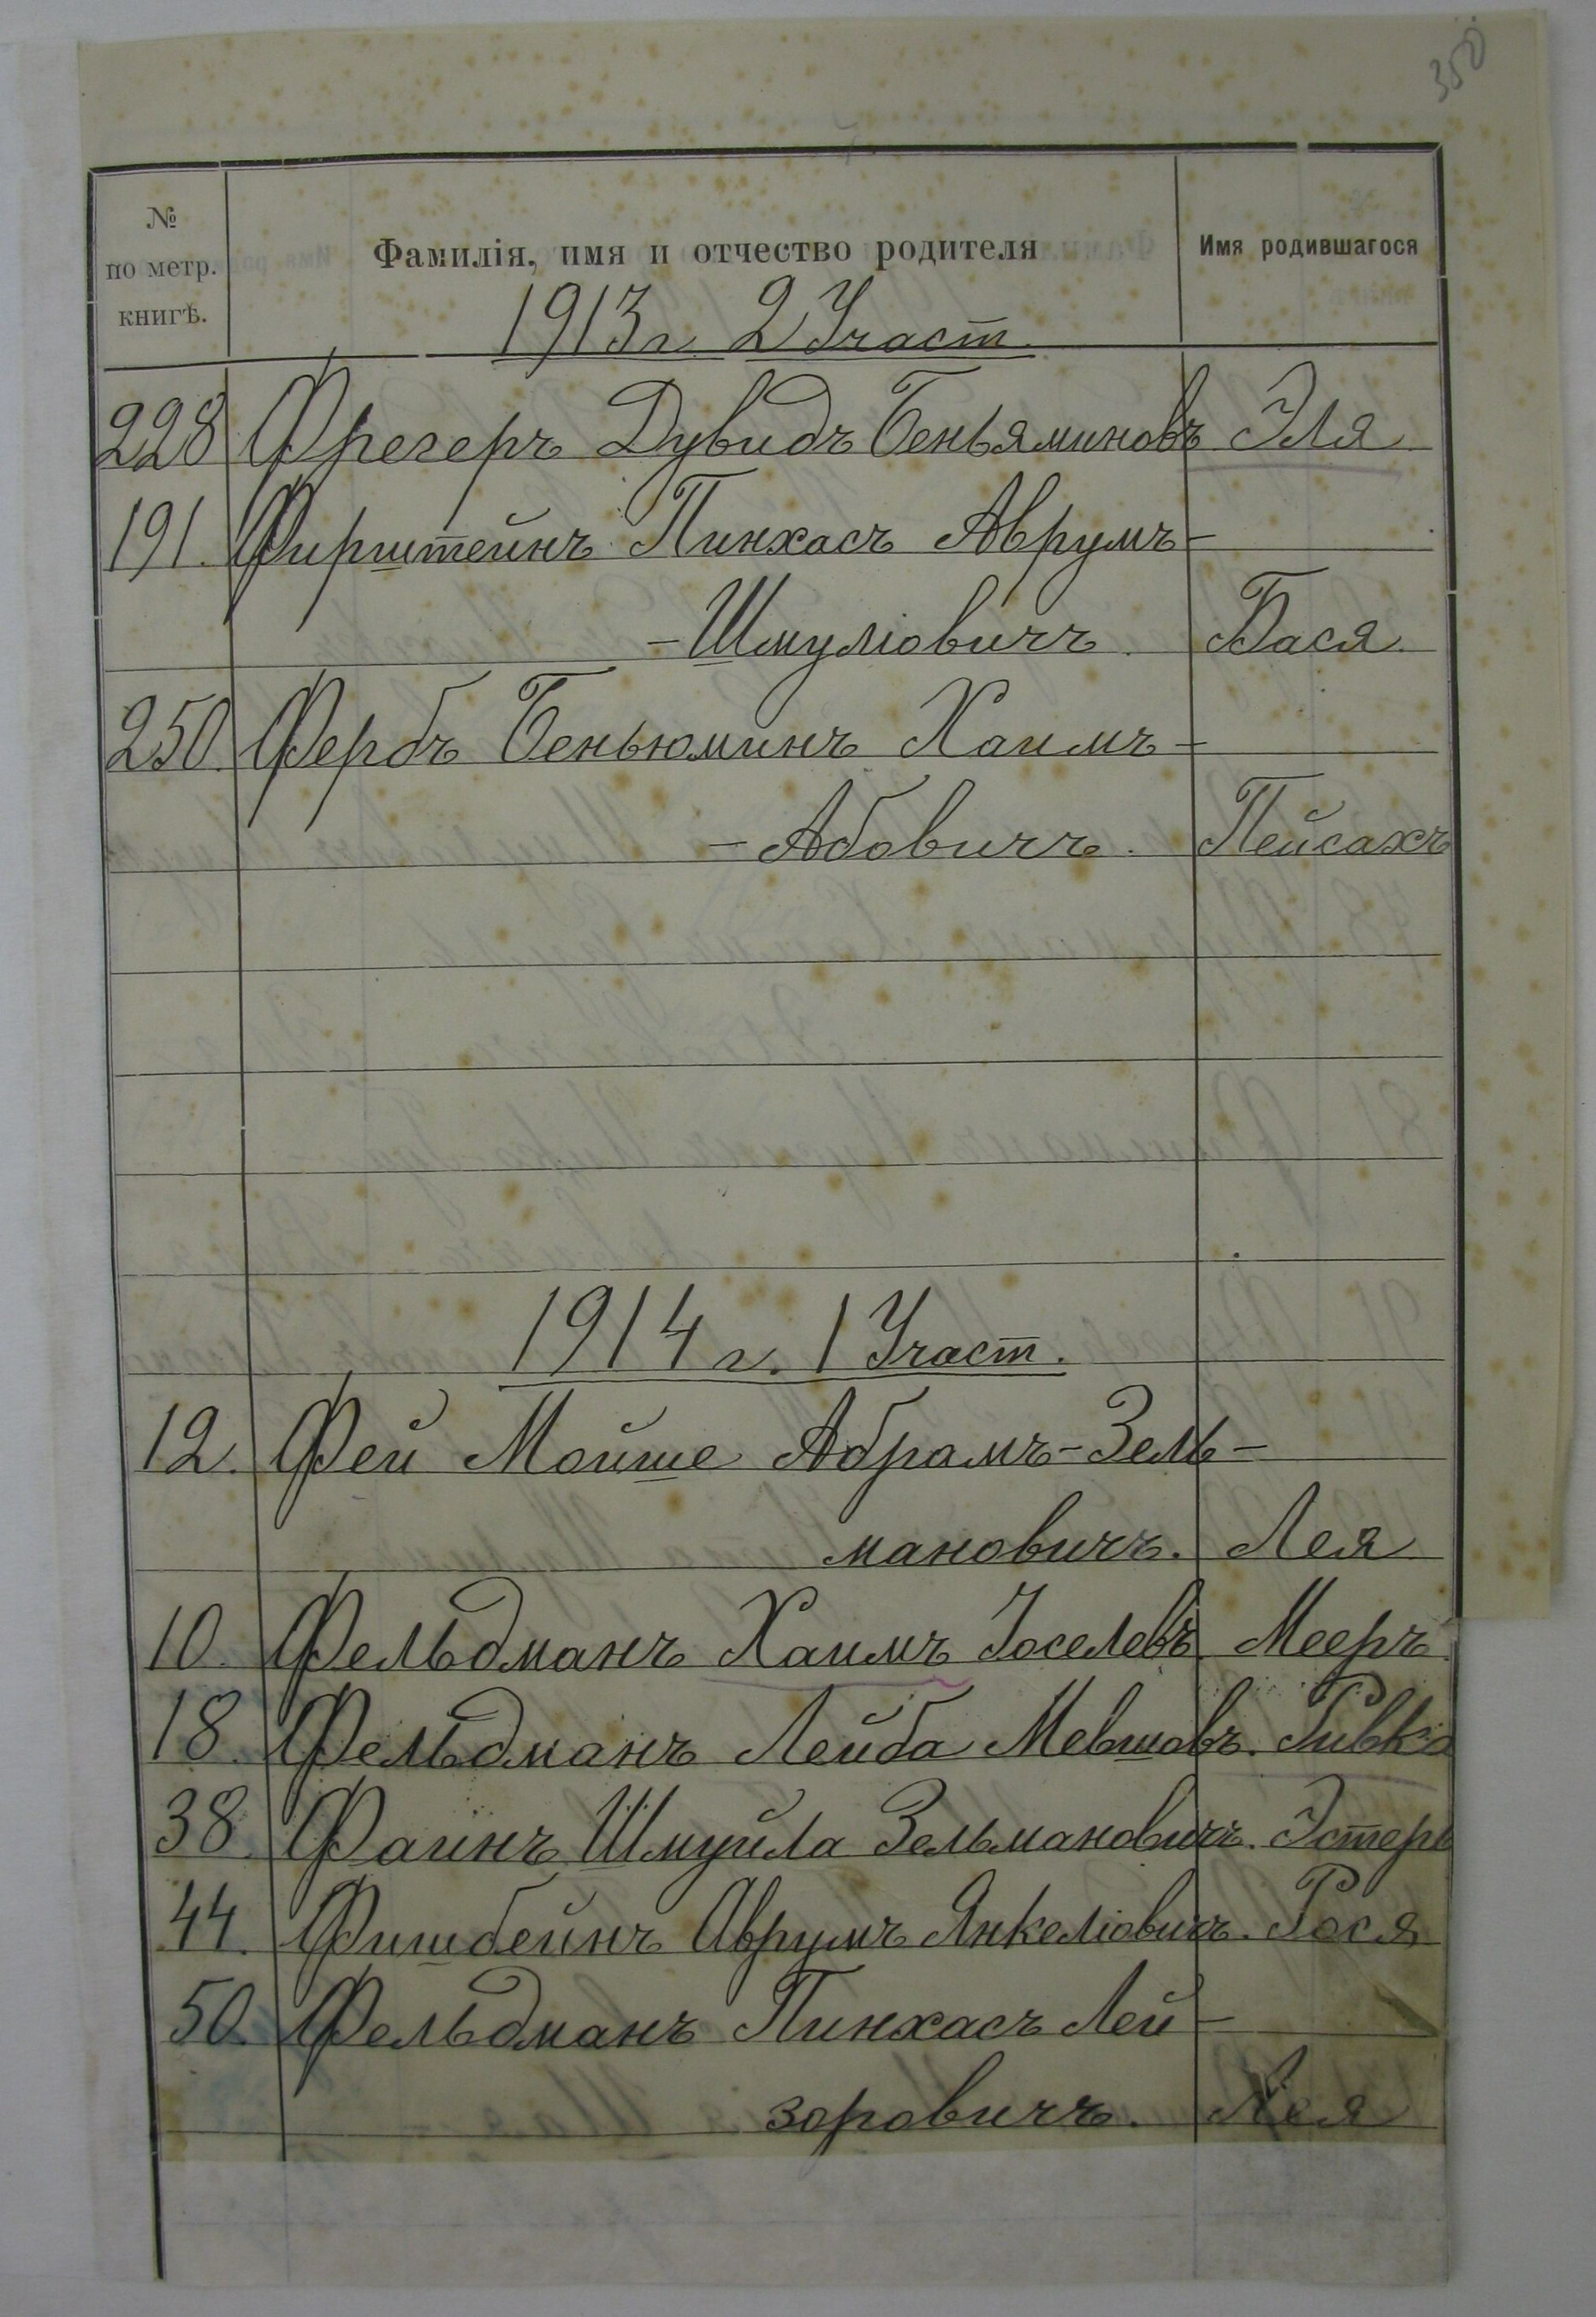 350
№ по метр. книгѣ. Фамилія, имя и отчество родителя Имя родившагося
1913 г. 2 Участ.
228 Фрегеръ Дувидъ Беньяминовъ Эля
191. Фирштейнъ Пинхасъ Аврумъ-
-Шмуліовичъ. Бася.
250. Фербъ Беньюминъ Хаимъ-
-Абовичъ. Пейсахъ
1914 г. 1 Участ.
12. Фей Мойше Абрамъ-Зель-
мановичъ. Лея
10. Фельдманъ Хаимъ Іоселевъ Мееръ.
18. Фельдманъ Лейба Мевшовъ. Ривка
38. Фаинъ Шмуйла Зельмановичъ. Эстеръ
44. Фишбейнъ Аврумъ Янкеліовичъ. Рося
50. Фельдманъ Пинхасъ Лей-
зоровичъ. Лея